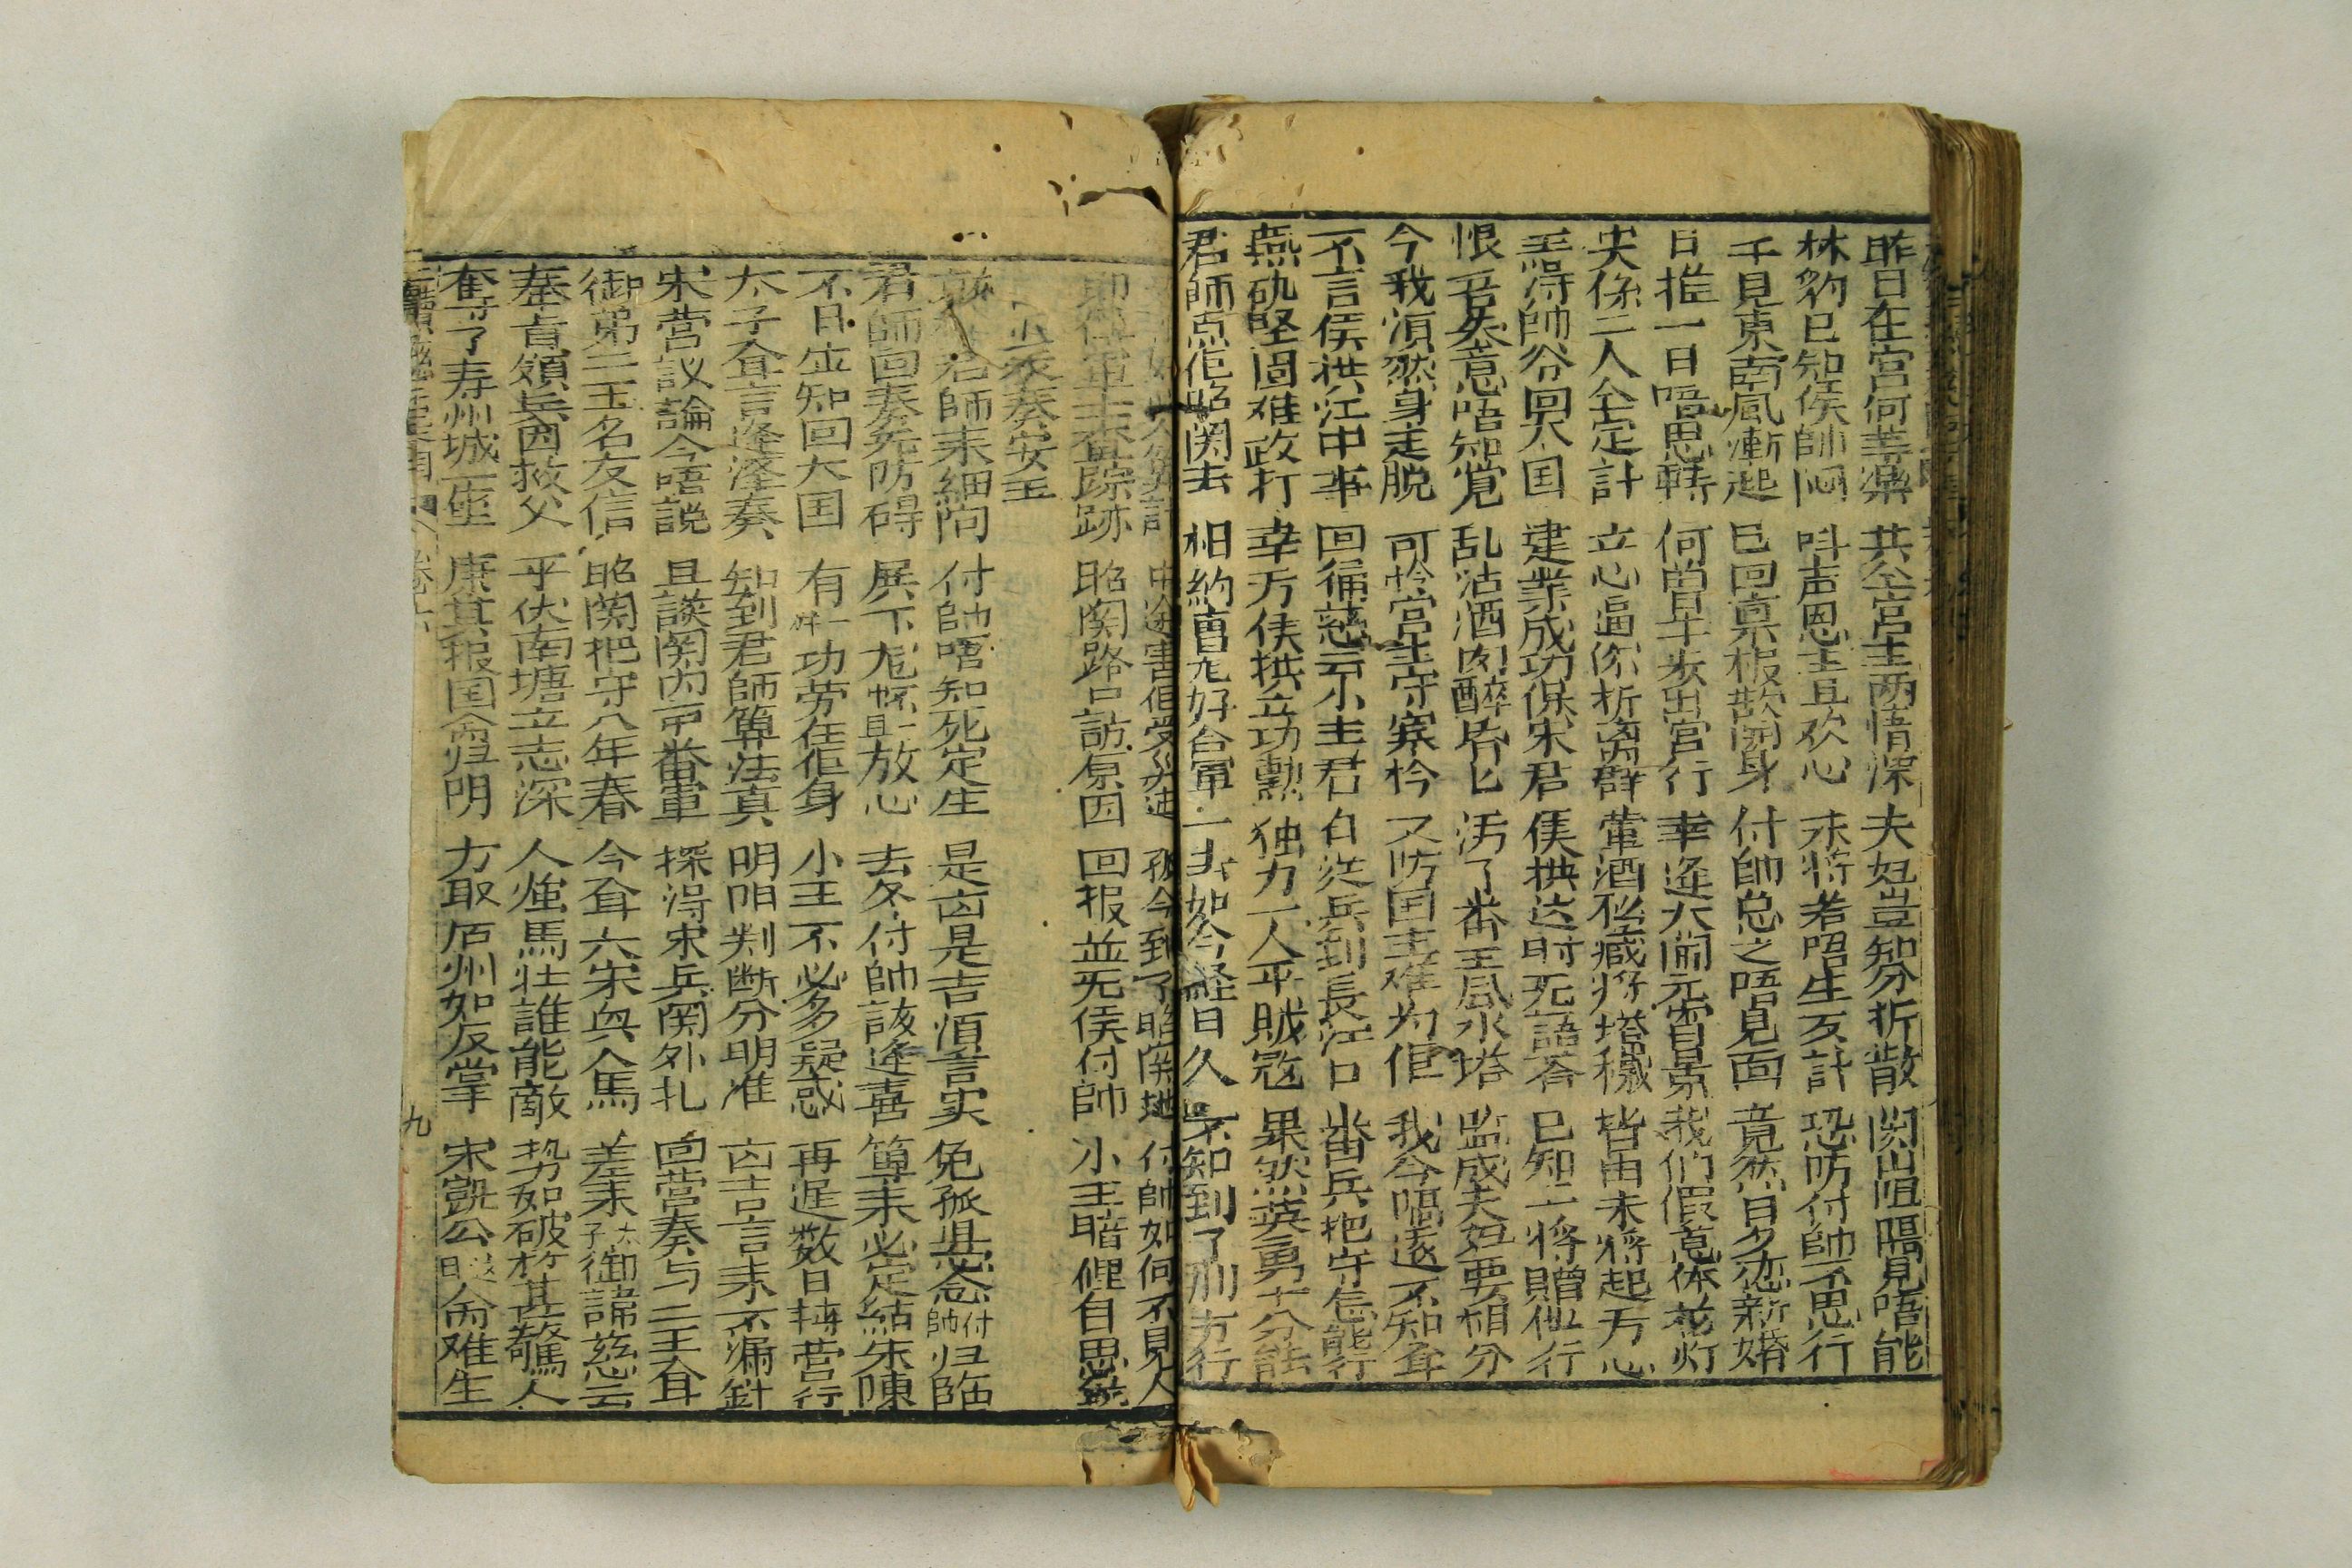 昨日在宮何等樂 共仝宮主两情深 夫妇豈知分折散 関山阻隔見唔能
林豹已知侯帥悶 呌声恩主且欢心 末將若唔生反計 恐防付帥不思行
千見東南風漸起 已回禀报散闲身 付帥怱之唔見面 竟然日夕恋新婚
日推一日唔思轉 何曾早炎出宮行 幸逢大閙元宵景 我們假意体花灯
实係二人仝定計 立心逼你折离群 葷酒 臧將塔穢 皆由末將起歹心
羔淂帥谷回大国 建業成功保宋君 侯拱这时无語答 已知二將贈他行
恨吾失意唔知覚 乱沾酒肉醉昏匕 污了番王風水塔 监成夫妇要相分
今我湏然身走脱 可怜宮主守寒衿 又防国王难为佢 我今隔遠不知耳
不言侯拱江中事 回徧慈云小主君 自从兵到長江口 番兵把守怎能行
燕矶堅固难政打 幸方侯拱立功勲 独力一人平賊冦 果然英勇十分能
君師点佢昭関去 相約曹 好合軍 一去如今経日久 未知到了別方行
中途害佢受 孤今到了昭関地 付帥如何不見人
即 軍士查踪跡 昭関路口訪原因 回报並无侯付帥 小王暗俚自思
奏安王
君師来細问 付帥唔知死定生 是凶是吉湏言实 免孤思念付帥归臨
君師回奏无防碍 展下 怀且一放心 去冬付帥該逢喜 算来必定結朱陳
不日应知回大国 有 一功劳在佢身 小王不必多疑惑 再遲数日轉营行
太子耳言逢泽奏 知到君師算法真 明明判断分明准 凶吉言来不漏針
宋营議論今唔説 且談関内一番軍 探淂宋兵関外扎 回营奏与二王耳
御弟二王名友信 昭関把守八年春 今耳六宋興人馬 差来太子御諱慈云
奉旨領兵因救父 平伏南塘立志深 人强馬壮誰能敵 势如破竹甚驚人
奪了寿州城一座 康其报国命归明 力取 州如反掌 宋 公 日命难生
卷六 九